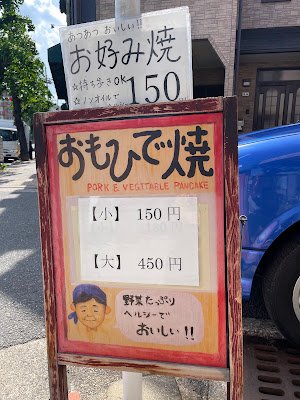 あつあつ おいしい!!
お好み焼
☆持ち歩きOK
☆ノンオイルで
150
おもひで焼
PORK & VEGETABLE PANCAKE
【小】 150円
【大】 450円
野菜たっぷり
ヘルシーで
おいしい!!